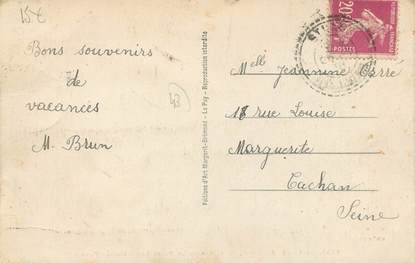 15€
Bons souvenirs
de
vacances
M. Brun
43
Editions d'Art Margerit-Brémond - Le Puy - Reproduction interdite
20c
POSTES
Melle Jeannine Carre
18 rue Louise
Marguerite
Cachan
Seine